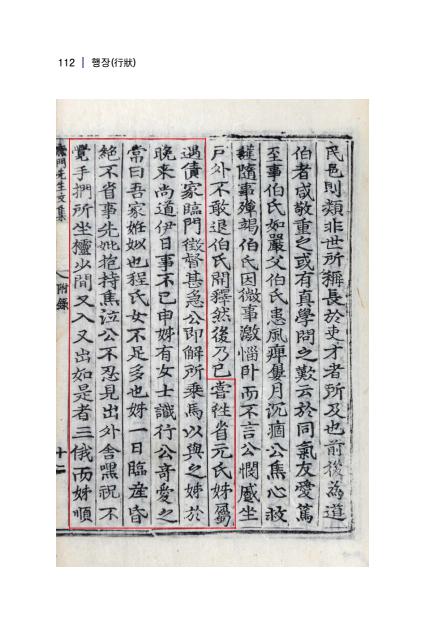 112 | 행장(行狀)
民邑則類非世所稱長於吏才者所及也前後爲道
伯者咸敬重之或有眞學問之歎云於同氣友愛篤
至事伯氏如嚴父伯氏患風痺屢月沉痼公焦心救
護隨事殫竭伯氏因微事激惱卧而不言公憫蹙坐
戶外不敢退伯氏開釋然後乃已嘗往省元氏姊屬
遇債家臨門徵督甚急公卽解所乘馬以與之姊於
晚来尚道伊日事不已申姊有女士識行公奇愛之
常曰吾家姙姒也程氏女不足多也姊一日臨產昏
絶不省事先妣抱持焦泣公不忍見出外舍嘿祝不
覺手捫所坐㯓少間又入又出如是者三俄而姊順
門先生文集
附錄
十二